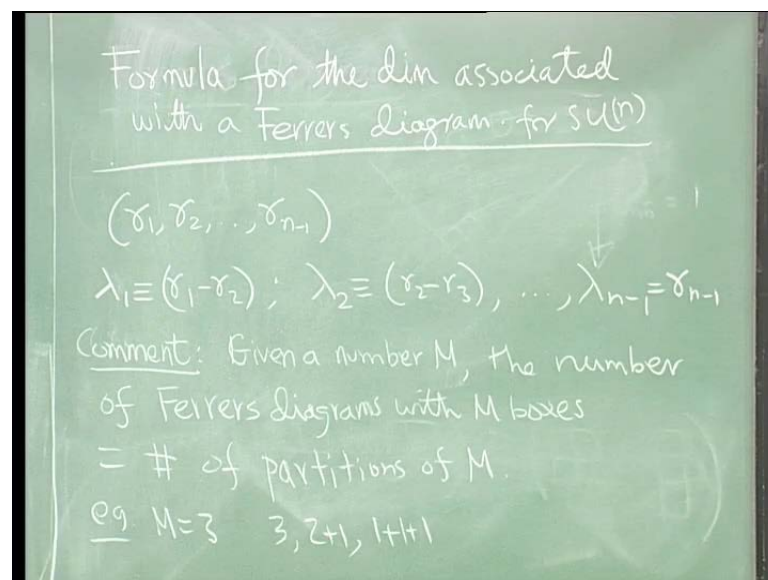 Formula for the dim associated
with a Ferrers diagram for SU(n)
(r₁, r₂, ..., rₙ₋₁)
= 1
λ₁ ≡ (r₁-r₂) ; λ₂ ≡ (r₂-r₃), ..., λₙ₋₁ = rₙ₋₁
Comment: Given a number M, the number
of Ferrers diagrams with M boxes
= # of partitions of M.
eg. M=3 3, 2+1, 1+1+1